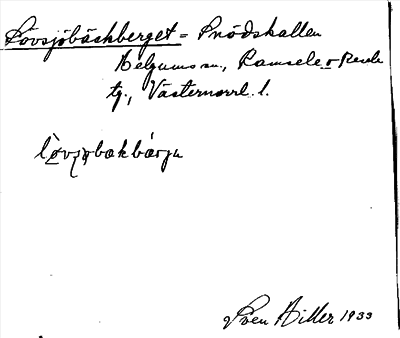 Lövsjöbäckberget = Snödskallen
Helgums sn., Ramsele o Resele
tg., Västernorrl. l.
lövsjobakbärjn
Sven Hiller 1933